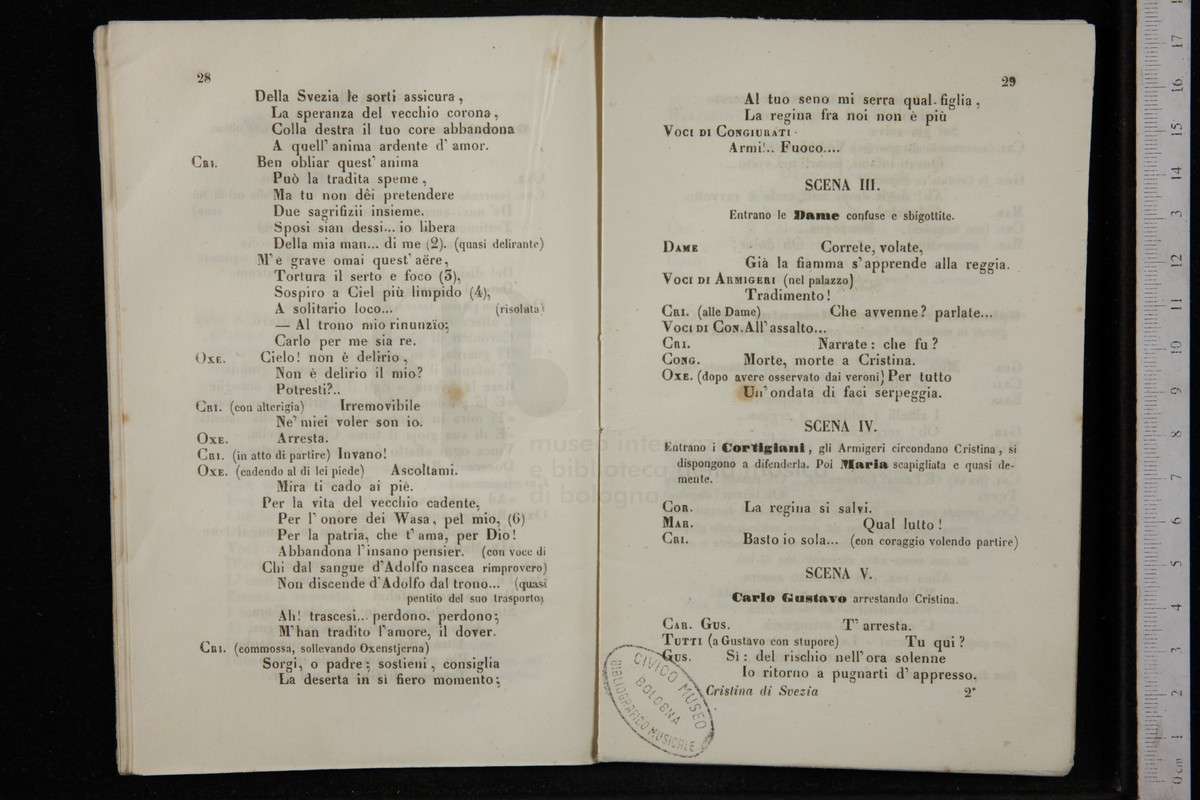 28
Della Svezia le sorti assicura,
La speranza del vecchio corona,
Colla destra il tuo core abbandona
A quell' anima ardente d' amor.
CRI. Ben obliar quest' anima
Può la tradita speme,
Ma tu non dêi pretendere
Due sagrifizii insieme.
Sposi sian dessi... io libera
Della mia man... di me (2). (quasi delirante)
M'è grave omai quest' aëre,
Tortura il serto e foco (3),
Sospiro a Ciel più limpido (4),
A solitario loco... (risoluta)
— Al trono mio rinunzïo;
Carlo per me sia re.
OXE. Cielo! non è delirio,
Non è delirio il mio?
Potresti?..
CRI. (con alterigia) Irremovibile
Ne' miei voler son io.
OXE. Arresta.
CRI. (in atto di partire) Invano!
OXE. (cadendo al di lei piede) Ascoltami.
Mira ti cado ai piè.
Per la vita del vecchio cadente,
Per l' onore dei Wasa, pel mio, (6)
Per la patria, che t' ama, per Dio!
Abbandona l'insano pensier. (con voce di
Chi dal sangue d'Adolfo nascea rimprovero)
Non discende d'Adolfo dal trono... (quasi
pentito del suo trasporto)
Ah! trascesi... perdono, perdono;
M'han tradito l'amore, il dover.
CRI. (commossa, sollevando Oxenstjerna)
Sorgi, o padre; sostieni, consiglia
La deserta in sì fiero momento;
29
Al tuo seno mi serra qual figlia,
La regina fra noi non è più
VOCI DI CONGIURATI
Armi!.. Fuoco....
SCENA III.
Entrano le Dame confuse e sbigottite.
DAME Correte, volate,
Già la fiamma s'apprende alla reggia.
VOCI DI ARMIGERI (nel palazzo)
Tradimento!
CRI. (alle Dame) Che avvenne? parlate...
VOCI DI CON. All' assalto...
CRI. Narrate: che fu?
CONG. Morte, morte a Cristina.
OXE. (dopo avere osservato dai veroni) Per tutto
Un' ondata di faci serpeggia.
SCENA IV.
Entrano i Cortigiani, gli Armigeri circondano Cristina, si
dispongono a difenderla. Poi Maria scapigliata e quasi de-
mente.
COR. La regina si salvi.
MAR. Qual lutto!
CRI. Basto io sola... (con coraggio volendo partire)
SCENA V.
Carlo Gustavo arrestando Cristina.
CAR. GUS. T' arresta.
TUTTI (a Gustavo con stupore) Tu qui?
GUS. Sì: del rischio nell' ora solenne
Io ritorno a pugnarti d' appresso.
Cristina di Svezia 2*
CIVICO MUSEO
BIBLIOGRAFICO MUSICALE
BOLOGNA
museo internazionale
e biblioteca della musica
di bologna
0 cm 1 2 3 4 5 6 7 8 9 10 11 12 13 14 15 16 17